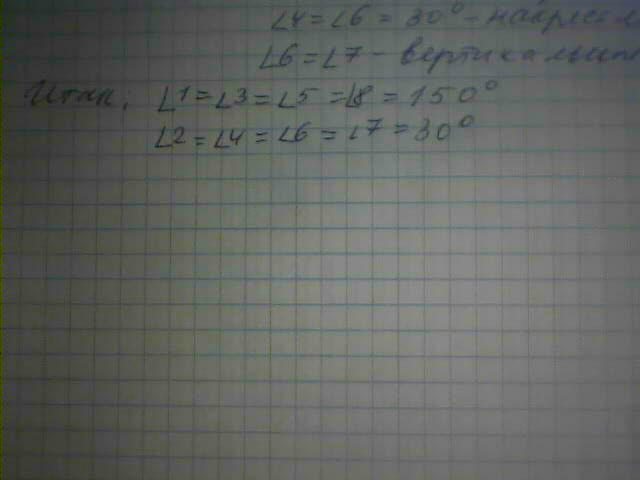 ∠4 = ∠6 = 30° - накрест л
∠6 = ∠7 - вертикальны
Итак: ∠1 = ∠3 = ∠5 = ∠8 = 150°
∠2 = ∠4 = ∠6 = ∠7 = 30°